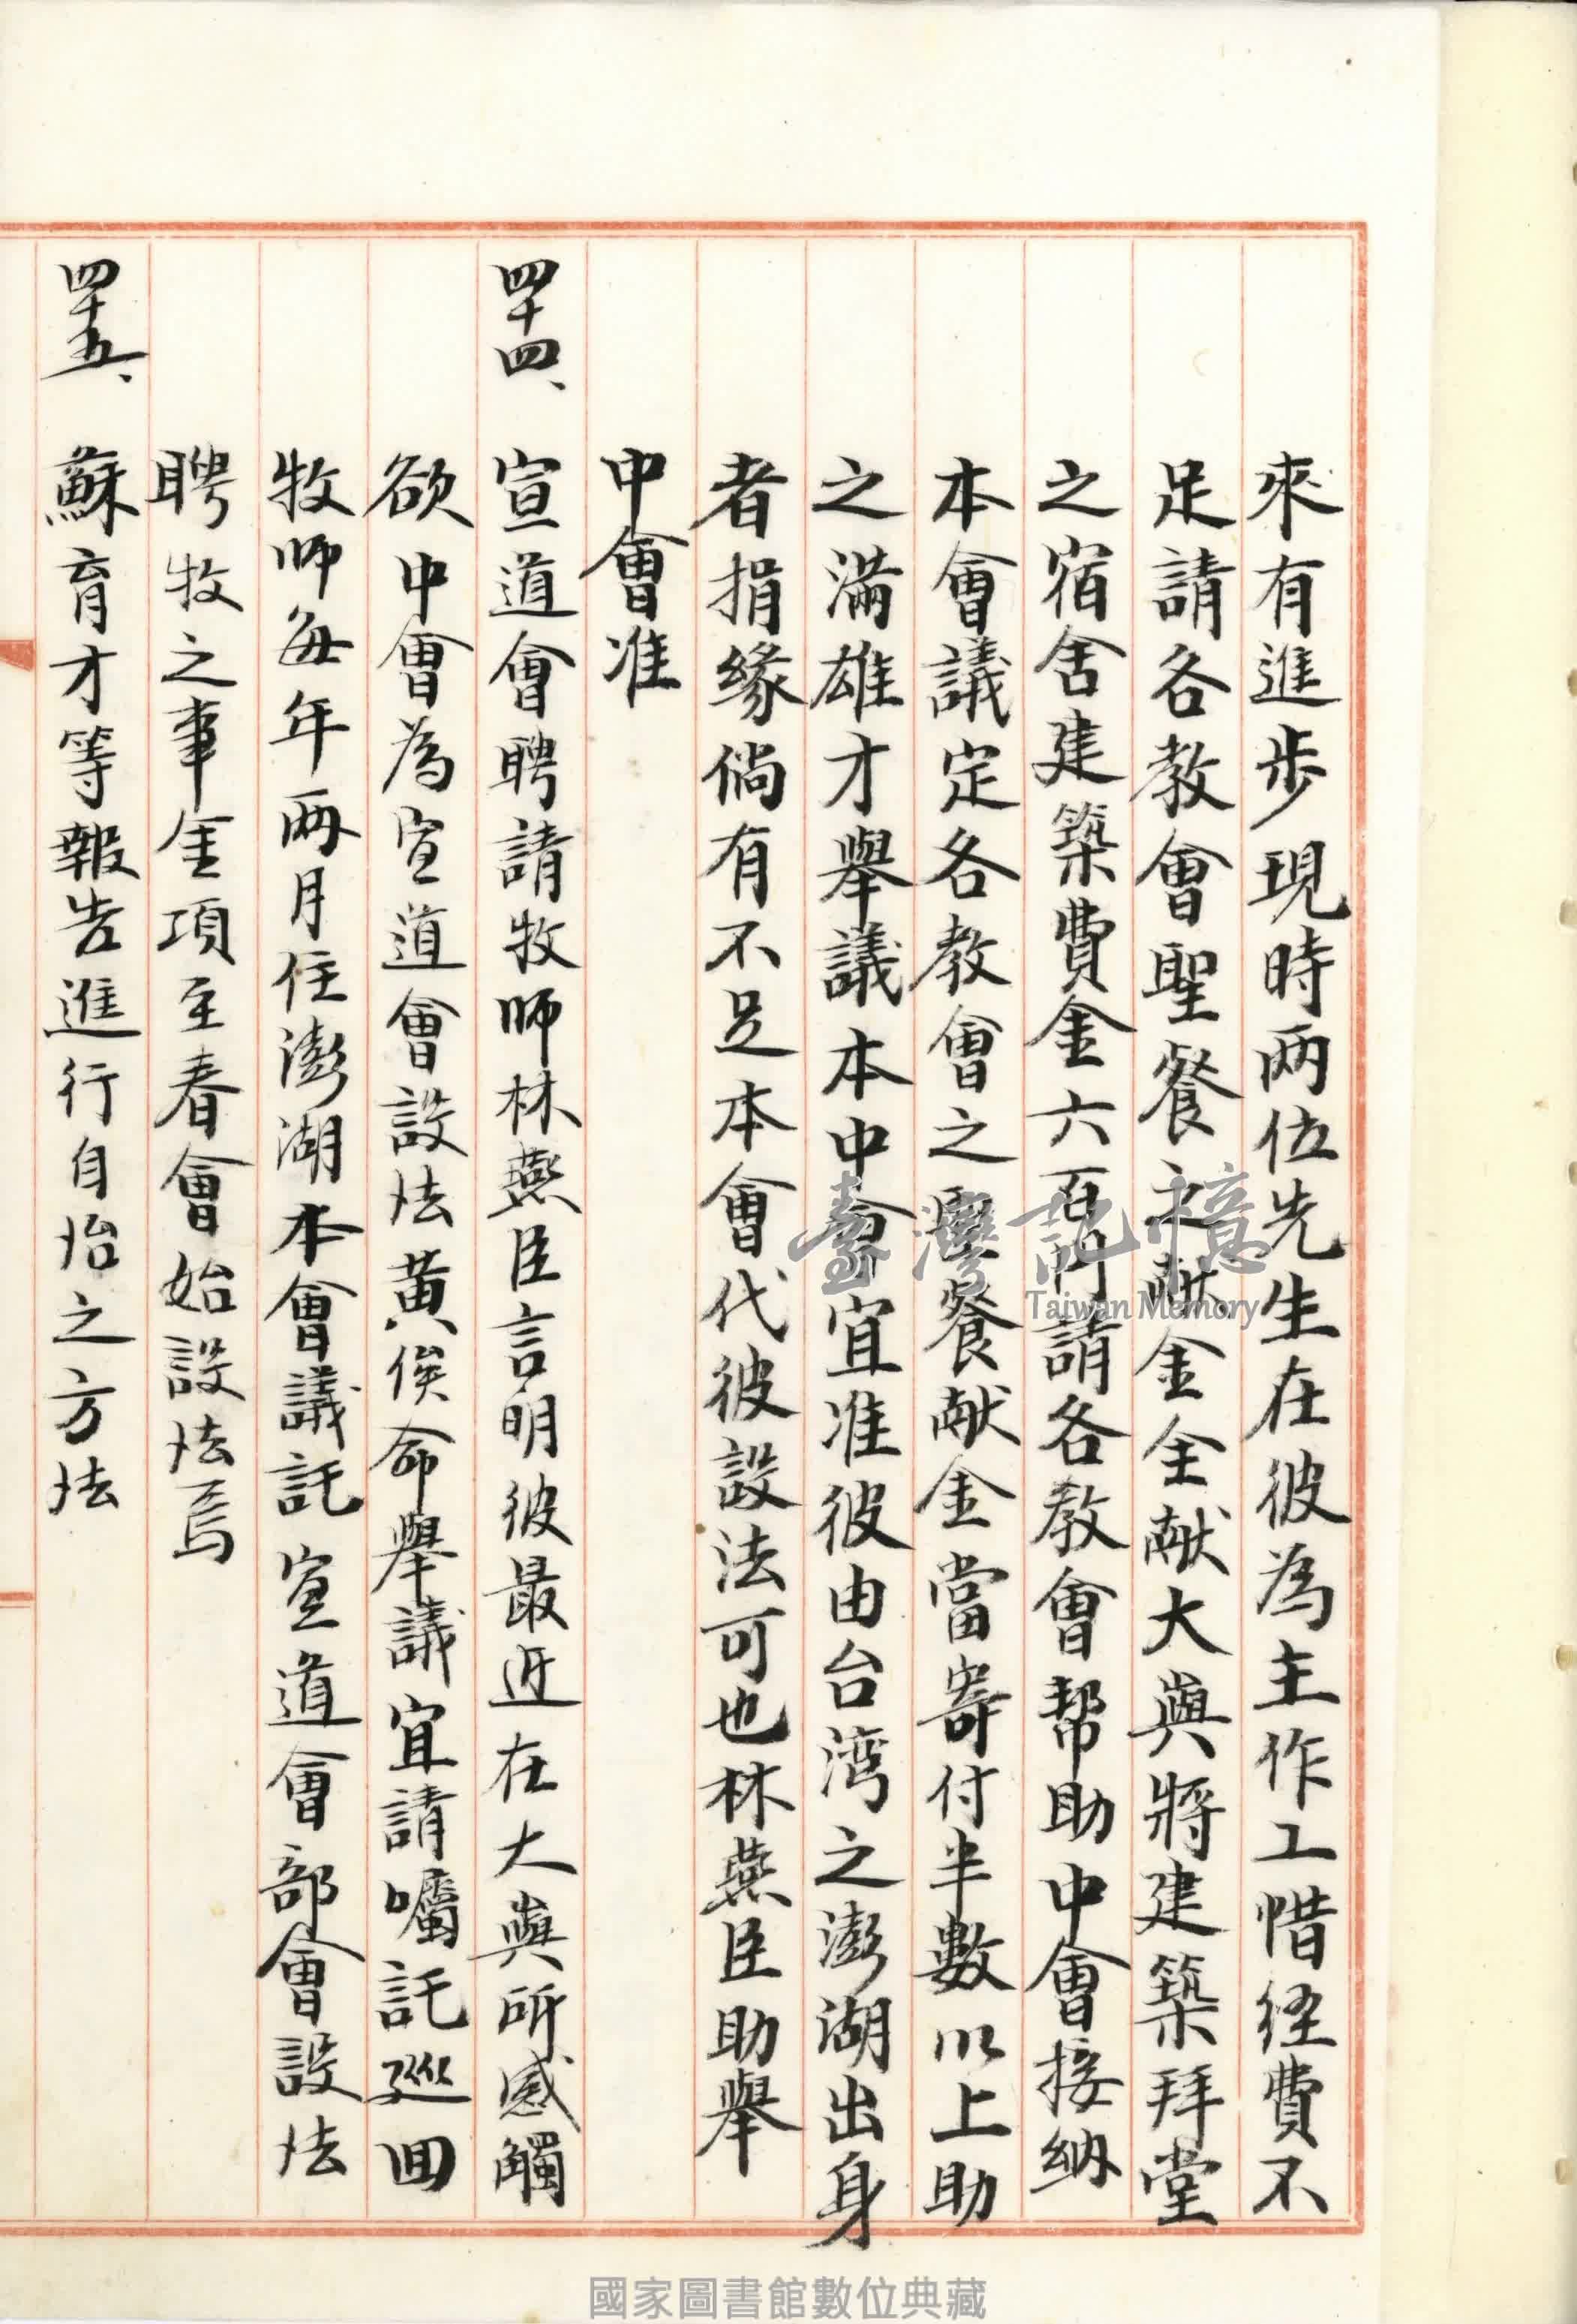 來有進步現時兩位先生在彼為主作工惜経費不
足請各教會聖餐之献金全献大與將建築拜堂
之宿舍建築費金六百円請各教會幇助中會接納
本會議定各教會之聖餐献金當寄付半數以上助
之滿雄才舉議本中會宜准彼由台湾之澎湖出身
者捐緣倘有不足本會代彼設法可也林燕臣助舉
中會准
四十四、宣道會聘請牧師林燕臣言明彼最近在大與所感觸
欲中會為宣道會設法黃俟命舉議宜請囑託廵囬
牧師每年兩月住澎湖本會議託宣道會部會設法
聘牧之事金項至春會始設法焉
四十五、蘇育才等報告進行自治之方法
臺灣記憶
Taiwan Memory
國家圖書館數位典藏